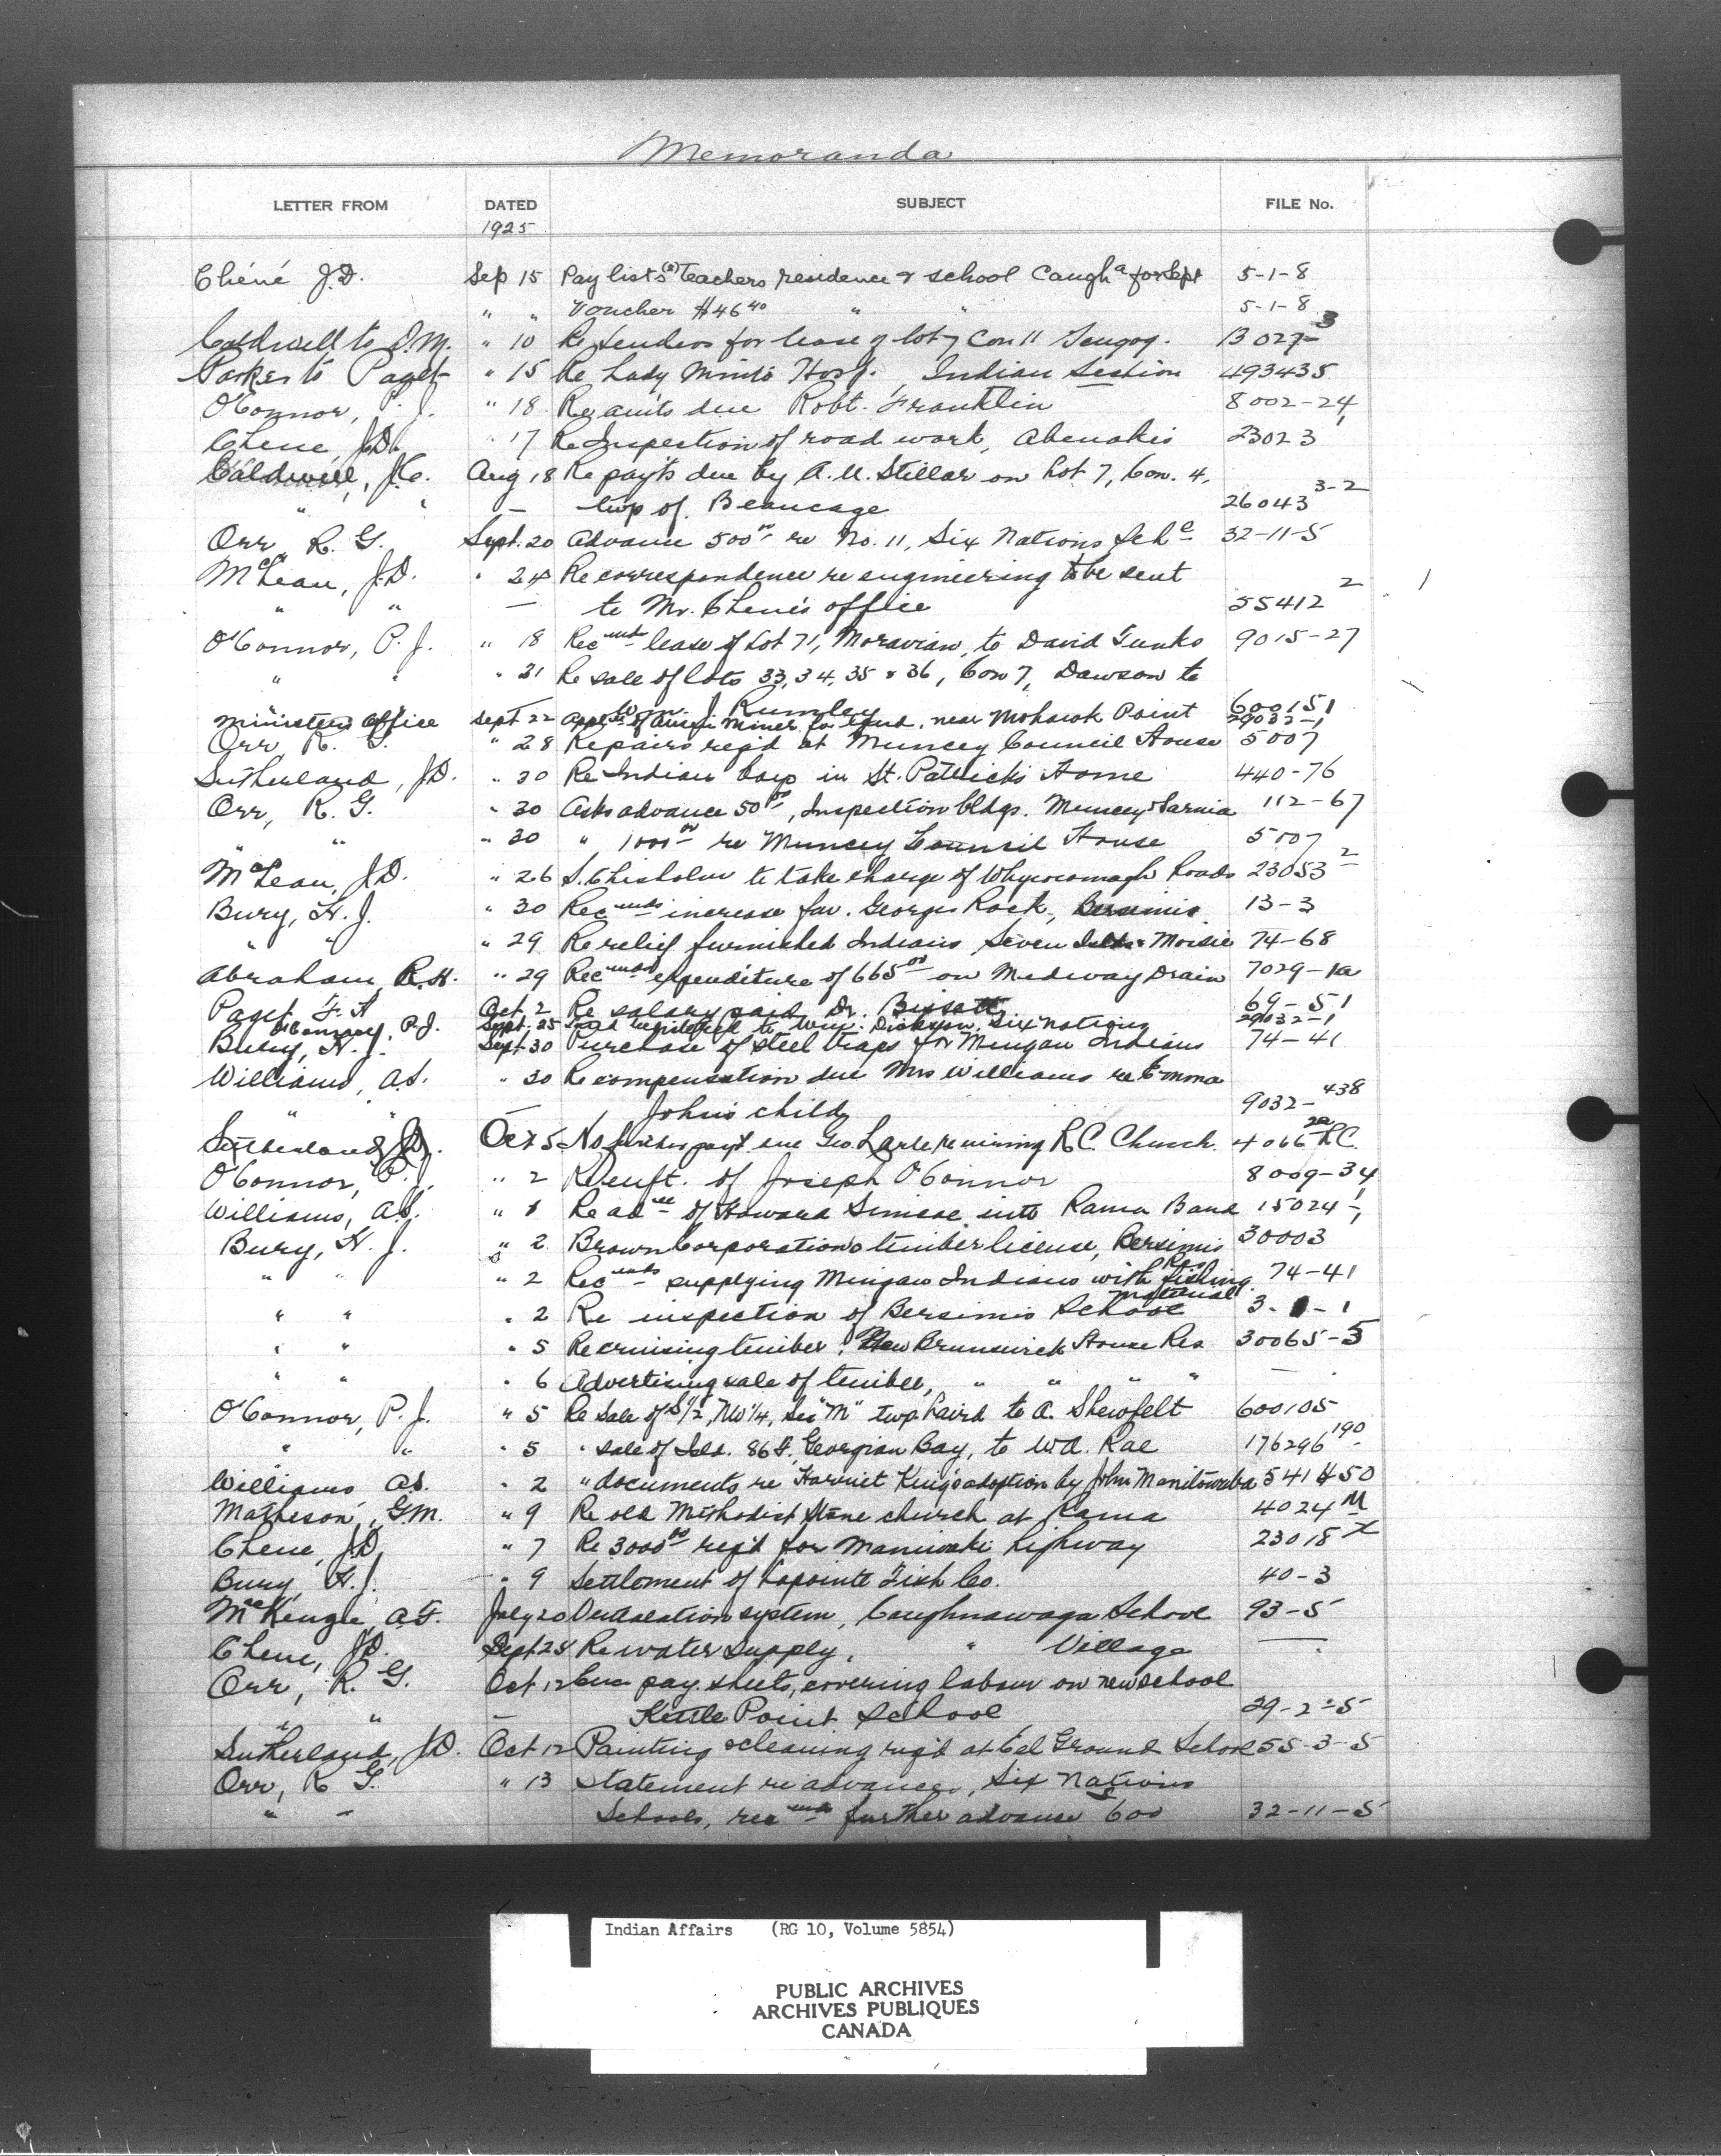 Memoranda
LETTER FROM DATED SUBJECT FILE No.
1925
Chéné J.D. Sep 15 Pay lists (2) Teachers residence & school Caugha for Sept 5-1-8
" " Voucher $46 40 " " 5-1-8
Caldwell to D.M. " 10 Re Tenders for lease of lot 7 Con 11 Scugog. 13027-3
Parker to Paget " 15 Re Lady Minto Hosp. Indian Section 493435
O'Connor, P. J. " 18 Re amts due Robt. Franklin 8002-24
Chene, J.D. " 17 Re Inspection of road work, Abenakis 23023
Caldwell, J.C. Aug 18 Re payts due by A. U. Stillar on Lot 7, Con. 4,
" " — twp of Beaucage 26043 3-2
Orr, R. G. Sept. 20 Advance 500 00 re No. 11, Six Nations Sche 32-11-5
McLean, J.D. " 24 Re correspondence re engineering to be sent
" " — to Mr. Chene's office 55412 2
O'Connor, P. J. " 18 Recmds lease of Lot 71, Moravian, to David 9015-27
" " " 21 Re sale of lots 33, 34, 35 & 36, Con 7, Dawson to
" " — Wm. J. Rumley 600151
Minister's Office Sept 22 of Miner for land near Mohawk Point 29032-1
Orr R. G. " 28 Repairs req'd at Muncey Council House 5007
Sutherland, J.D. " 30 Re Indian boys in St. Patrick's Home 440-76
Orr, R. G. " 30 Asks advance 50 00, Inspection bldgs. Muncey & Sarnia 112-67
" " " 30 " 1000 00 re Muncey Council House 5007
McLean, J.D. " 26 S. Chisholm to take charge of Whycocomagh Roads 23053 2
Bury, H. J. " 30 Recmds increase fav. Georges Rock, Bersimis 13-3
" " " 29 Re relief furnished Indians Seven Islds & Moisie 74-68
Abraham, R.H. " 29 Recmds expenditure of 665 00 on Medway Drain 7029-1a
Paget F. A Oct 2 Re salary paid Dr. 69-51
O'Connor, P.J. Sept. 25 Land to Wm. Dickson, Six Nations 29032-1
Bury, H. J. Sept 30 Purchase of steel traps for Mingan Indians 74-41
Williams, A.S. " 30 Re compensation due Mrs Williams re Emma
" " — John's child 9032-438
Sutherland, J.D. Oct 5 No further payt due Geo. re wiring R.C. Church. 4066 RC
O'Connor, P. J. " 2 Re enft. of Joseph O'Connor 8009-34
Williams, A.S. " 1 Re adce of Howard Simcoe into Rama Band 15024-1
Bury, H. J. " 2 Brown Corporation's timber license, Bersimis Res 30003
" " " 2 Recmds supplying Mingan Indians with fishing material 74-41
" " " 2 Re inspection of Bersimis School 3-1-1
" " " 5 Re cruising timber, New Brunswick House Res 30065-5
" " " 6 Advertising sale of timber, " " " " —
O'Connor, P. J. " 5 Re Sale of S½, NW¼, Sec "M" twp Laird to A. Shewfelt 600105
" " " 5 " sale of Isld. 86 F., Georgian Bay, to W.A. Rae 176296 190
Williams A.S. " 2 " documents re Harriet King's adoption by John Manitowaba 541450
Matheson, G.M. " 9 Re old Methodist Stone church at Rama 4024 M
Chene, J.D. " 7 Re 3000 00 req'd for Maniwaki highway 23018 X
Bury, H. J. " 9 Settlement of Lapointe Fish Co. 40-3
MacKenzie, A.F. July 20 system, Caughnawaga School 93-5
Chene, J.D. Sept 28 Re water supply, " Village —
Orr, R. G. Oct 12 Enc pay sheets, covering labour on new school
" " — Kettle Point School 29-2-5
Sutherland, J.D. Oct 12 Painting & cleaning req'd at Eel Ground School 55-3-5
Orr, R G. " 13 Statement re advances, Six Nations
" " Schools, recmds further advance 600 32-11-5
Indian Affairs (RG 10, Volume 5854)
PUBLIC ARCHIVES
ARCHIVES PUBLIQUES
CANADA